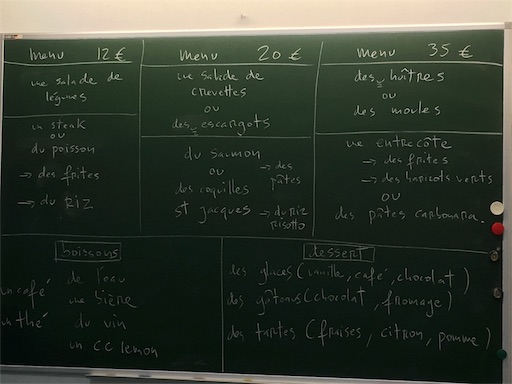 menu 12 €
une salade de
légumes
un steak
ou
du poisson
→ des frites
→ du RIZ
menu 20 €
une salade de
crevettes
ou
des escargots
du saumon
ou
des coquilles
St Jacques
→ des
pâtes
→ du riz
risotto
menu 35 €
des huîtres
ou
des moules
une ENTRECÔTE
→ des frites
→ des haricots verts
ou
des pâtes carbonara.
boissons
de l'eau
un café
une bière
un thé
du vin
un CC lemon
dessert
des glaces (vanille, café, chocolat)
des gâteaux (chocolat, fromage)
des tartes (fraises, citron, pomme)